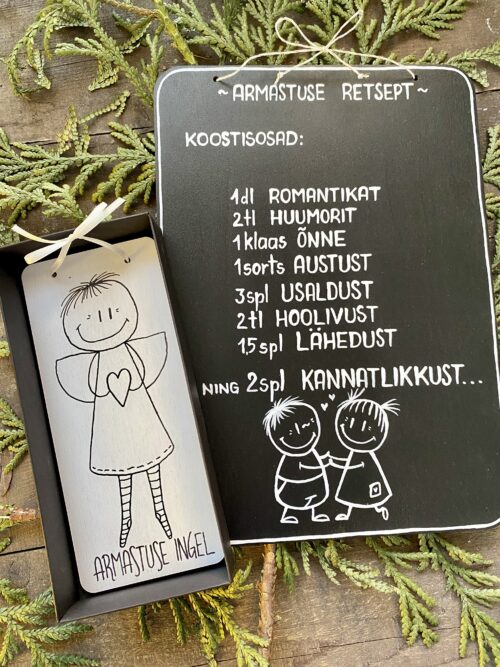 ~ARMASTUSE RETSEPT~
KOOSTISOSAD:
1dl ROMANTIKAT
2tl HUUMORIT
1klaas ÕNNE
1sorts AUSTUST
3spl USALDUST
2tl HOOLIVUST
1,5spl LÄHEDUST
NING 2spl KANNATLIKKUST...
ARMASTUSE INGEL